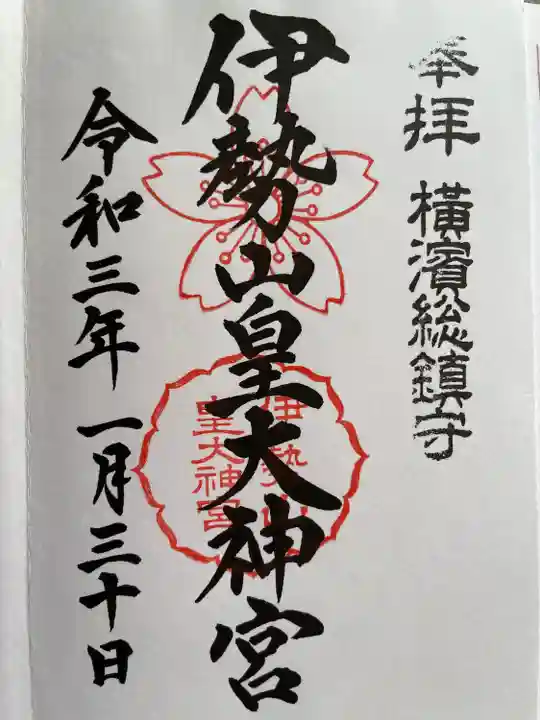 奉拝 橫濱総鎮守
伊勢山皇大神宮
伊勢山
皇大神宮
令和三年一月三十日